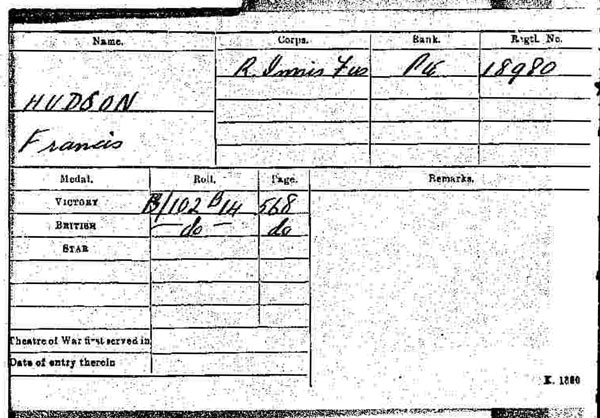 Name. Corps. Rank. Regtl. No.
R. Innis Fus Pte 18980
HUDSON
Francis
Medal. Roll. Page. Remarks.
VICTORY B/102 B14 568
BRITISH do do
STAR
Theatre of War first served in
Date of entry therein
K. 1380